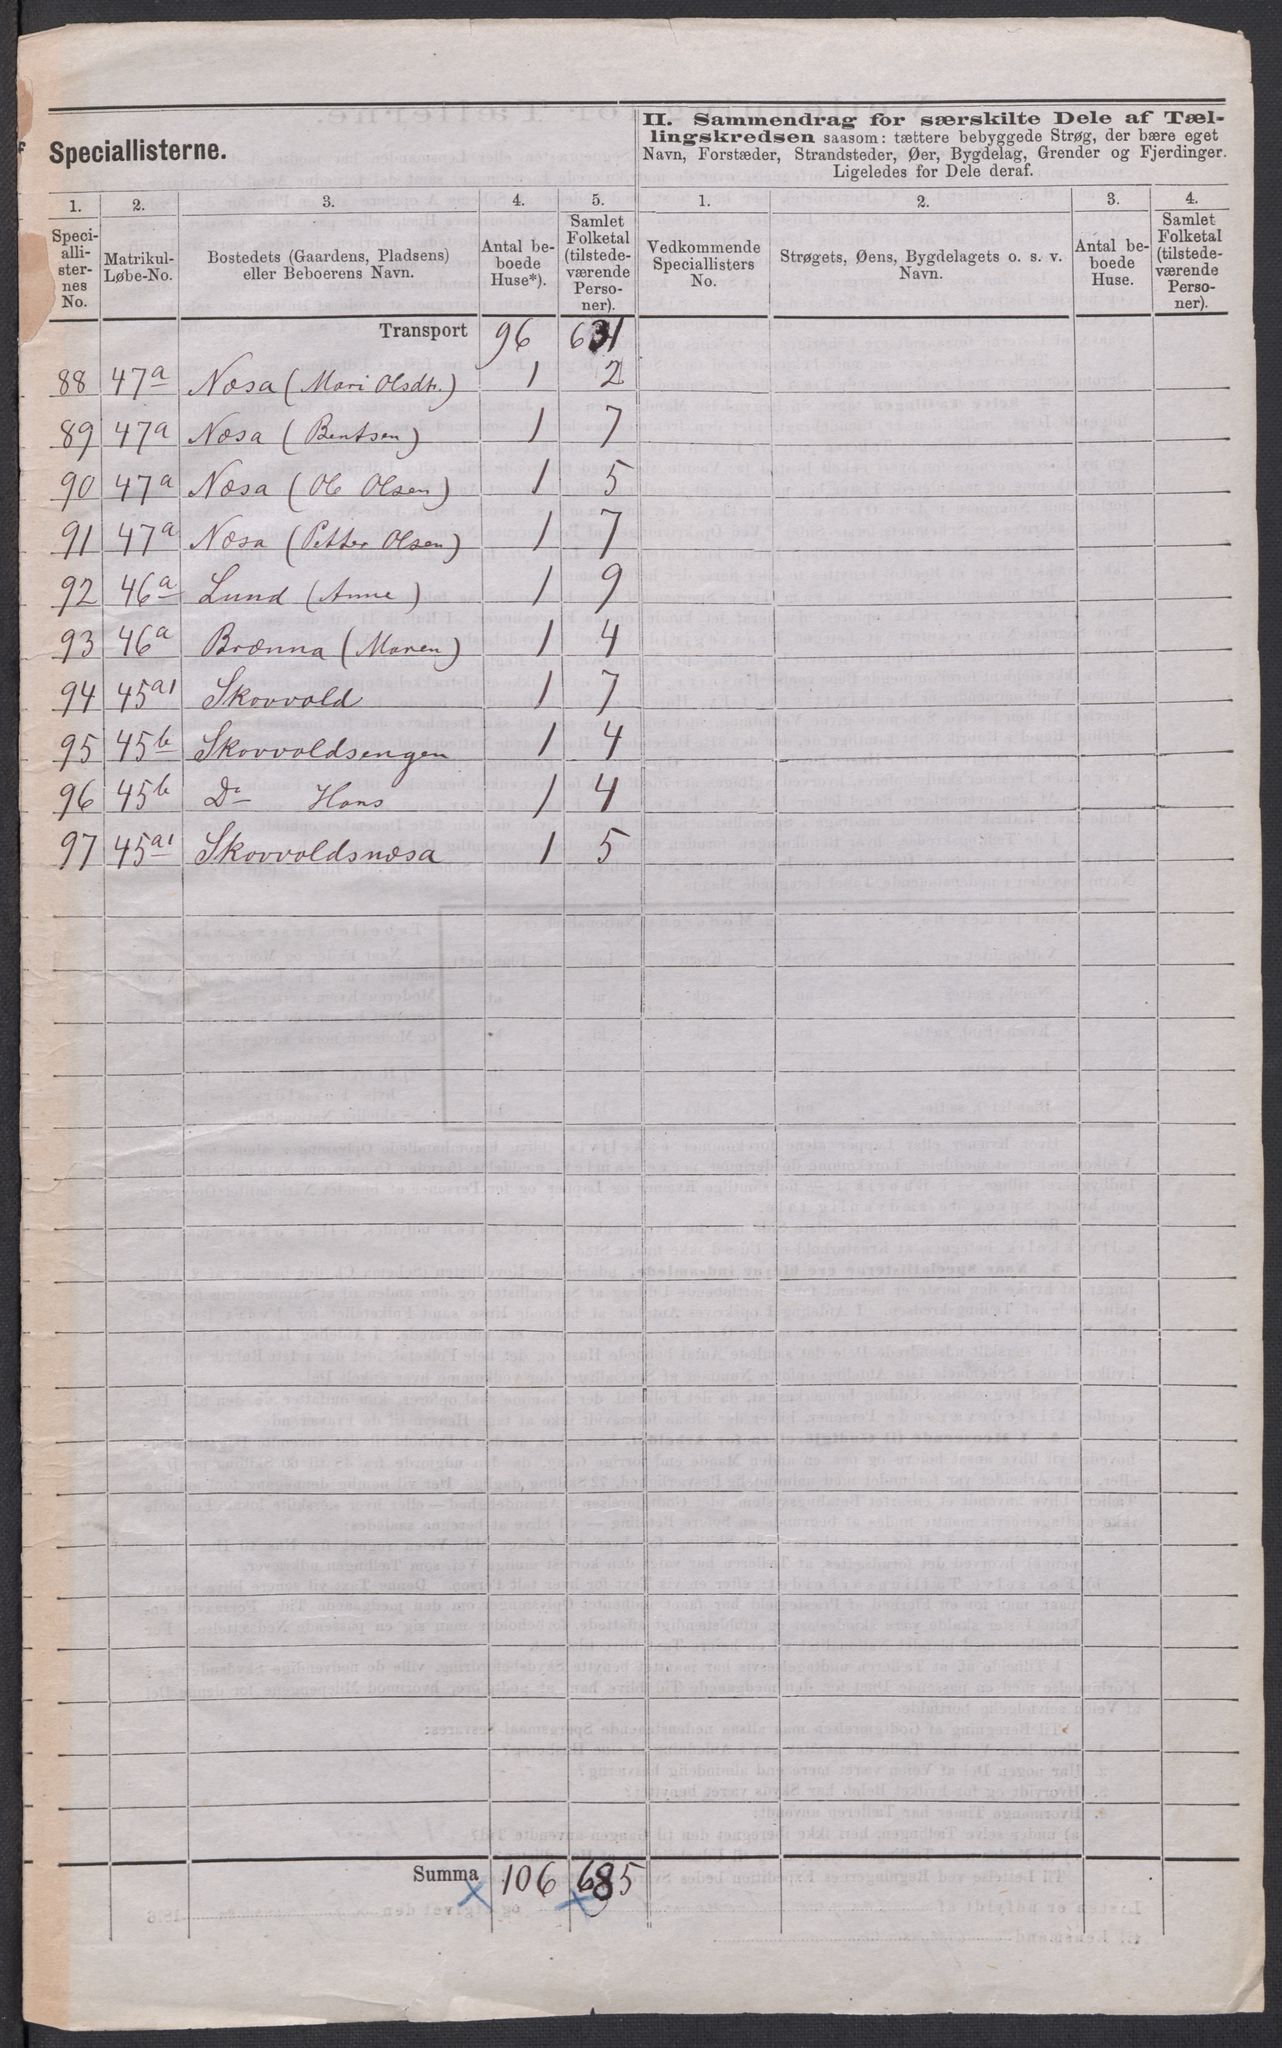 Speciallisterne.
II. Sammendrag for særskilte Dele af Tæl-
lingskredsen saasom: tættere bebyggede Strøg, der bære eget
Navn, Forstæder, Strandsteder, Øer, Bygdelag, Grender og Fjerdinger.
Ligeledes for Dele deraf.
1. 2. 3. 4. 5. 1. 2. 3. 4.
Speci-
alli-
ster-
nes
No.
Matrikul-
Løbe-No.
Bostedets (Gaardens, Pladsens)
eller Beboerens Navn.
Antal be-
boede
Huse*).
Samlet
Folketal
(tilstede-
værende
Perso-
ner).
Vedkommende
Speciallisters
No.
Strøgets, Øens, Bygdelagets o. s. v.
Navn.
Antal be-
boede
Huse.
Samlet
Folketal
(tilstede-
værende
Perso-
ner).
Transport 96 631
88 47a Næsa (Mari Olsdtr.) 1 2
89 47a Næsa (Bentsen) 1 7
90 47a Næsa (Ole Olsen) 1 5
91 47a Næsa (Petter Olsen) 1 7
92 46a Lund (Anne) 1 9
93 46a Brænna (Maren) 1 4
94 45a1 Skovvold 1 7
95 45b Skovvoldsengen 1 4
96 45b Do Hans 1 4
97 45a1 Skovvoldsnæsa 1 5
Summa 106 685